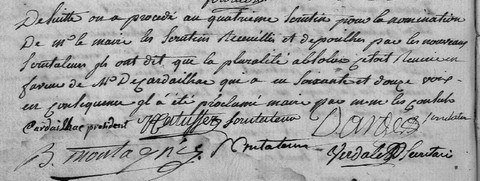 De suitte on a procédé au quatrieme scrutin pour la nomination
De mr le maire les scrutins Recueillis et depouilles par les nouveaux
scrutateurs ils ont dit que la pluralité absolue s'etoit reunie en
faveur de Mr De Cardaillac qui a eu soixante et douze voix
en consequence il a été proclamé maire par mm les consuls
Cardaillac président scrutateur Dardes scrutateur
B. montagnés scrutateur Verdale Secretaire